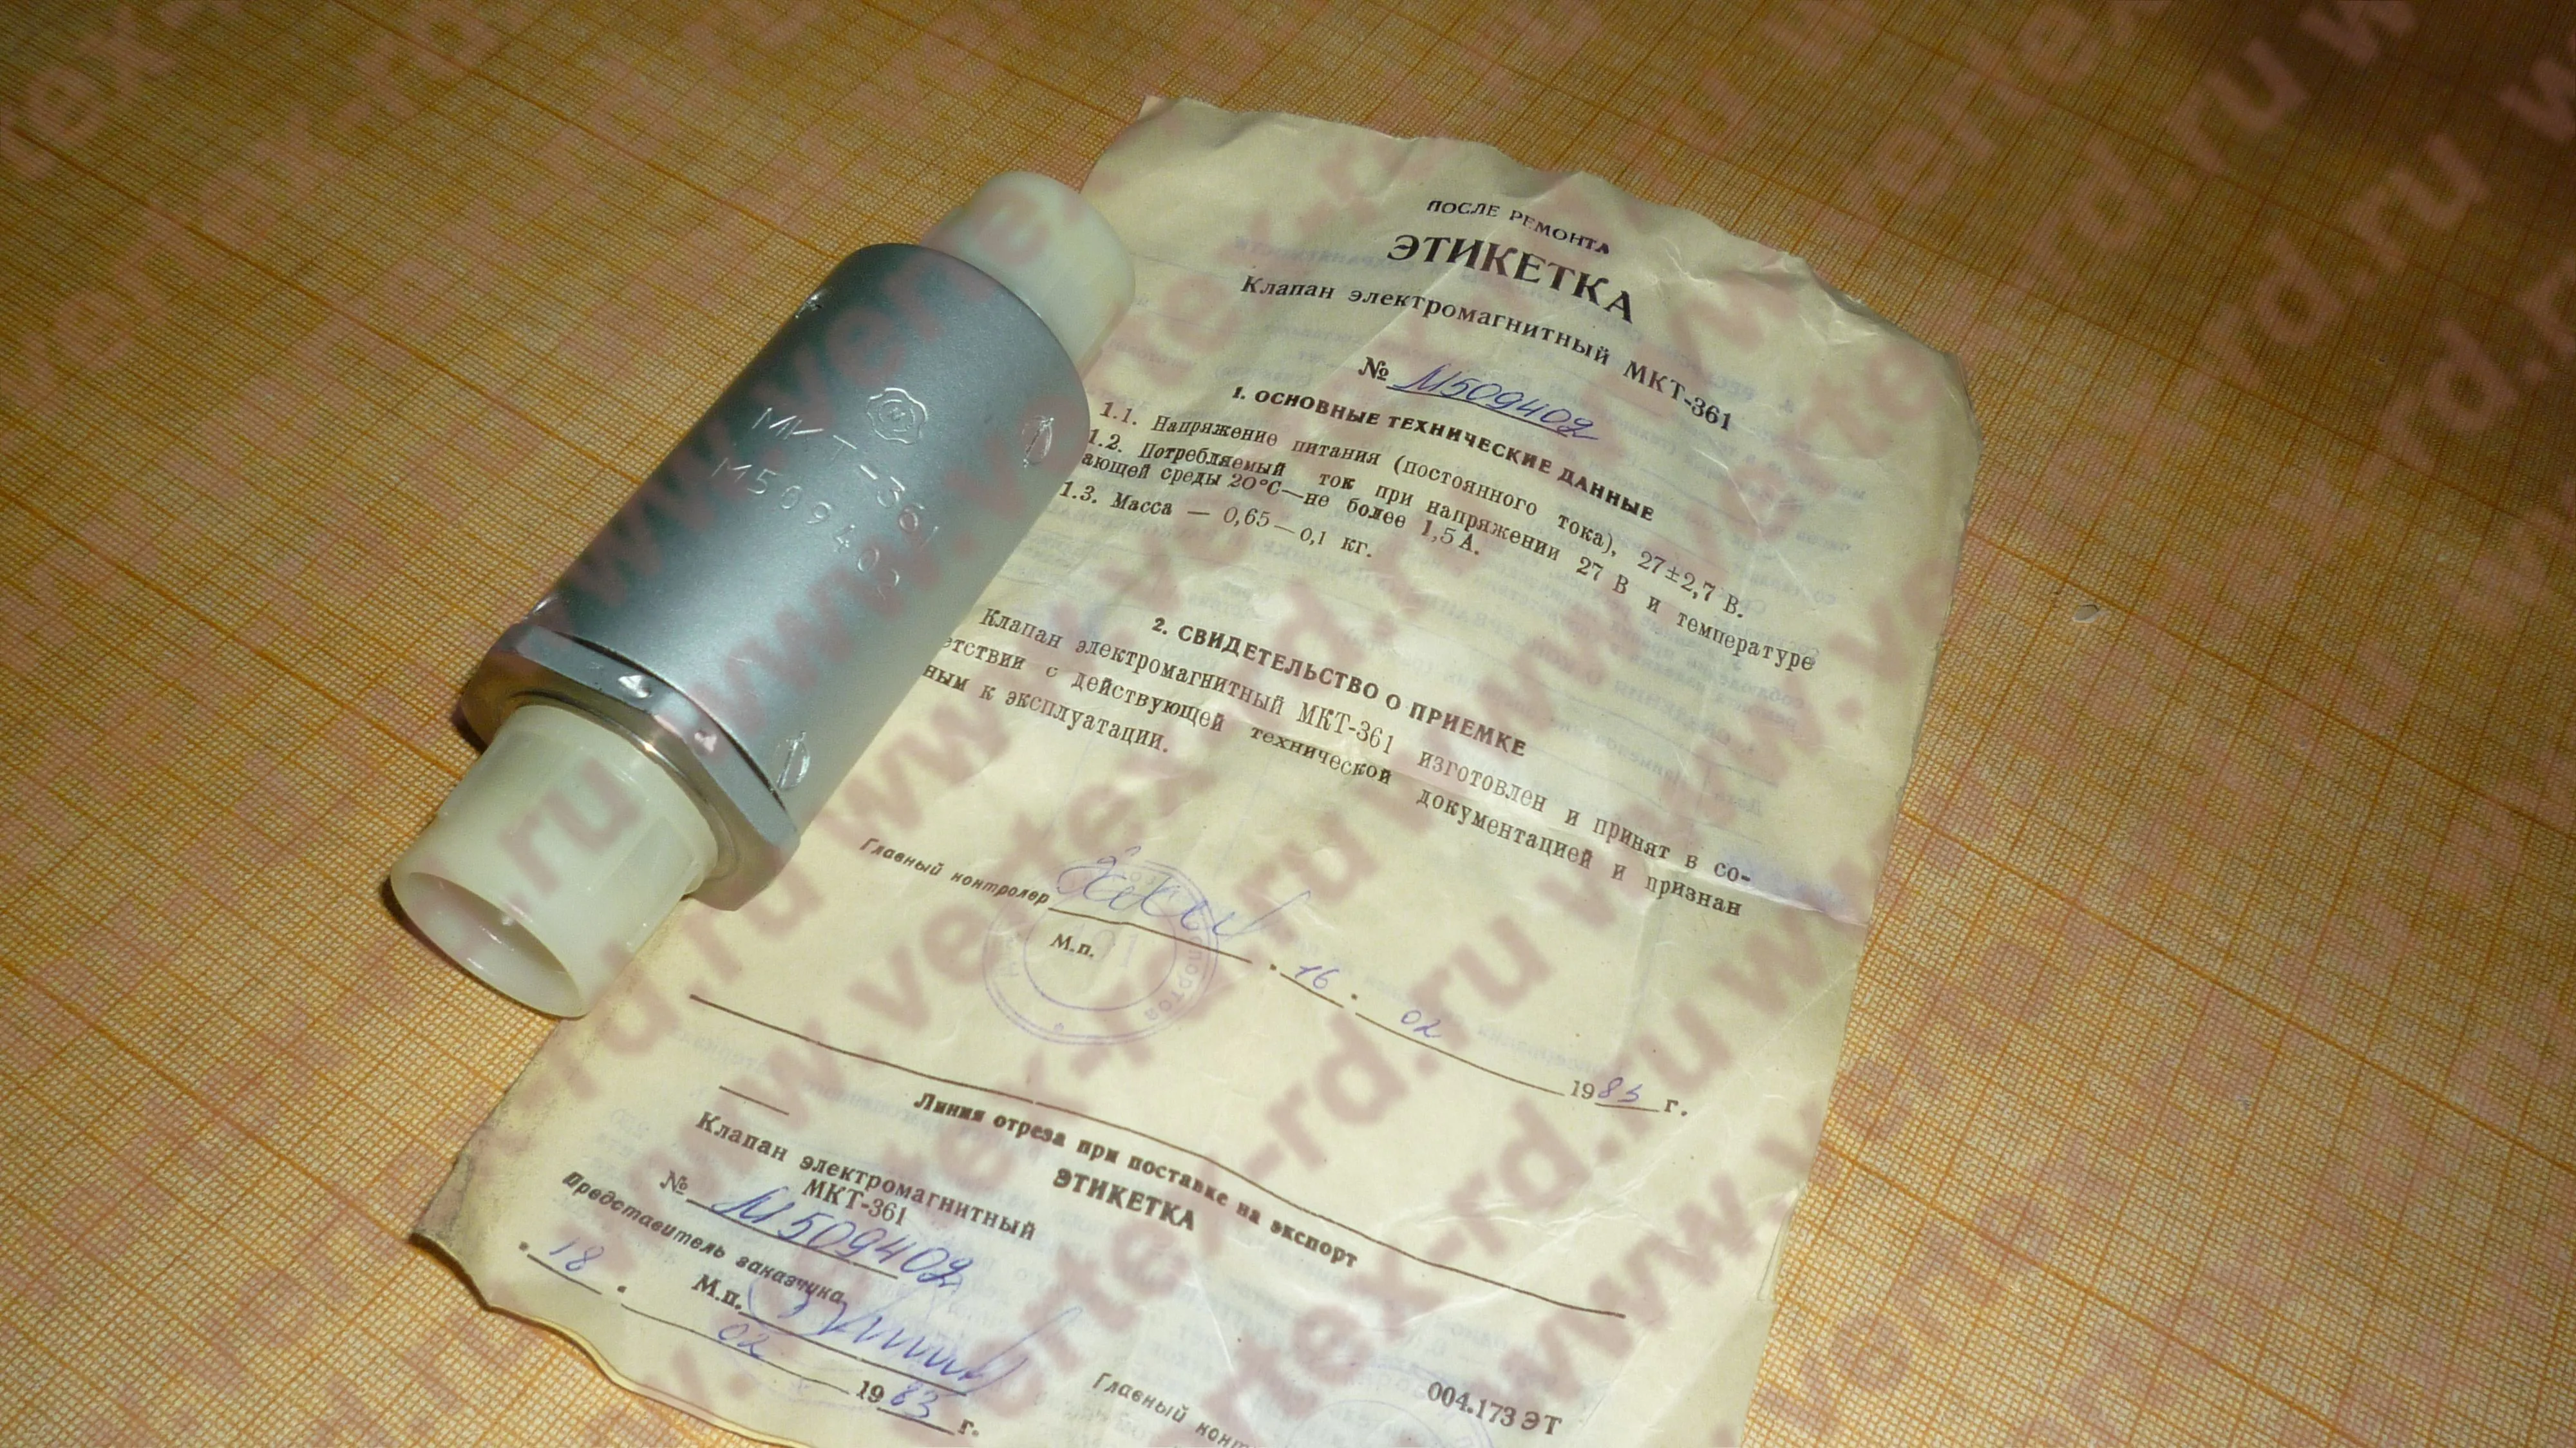 МКТ-361
М509402
ПОСЛЕ РЕМОНТА
ЭТИКЕТКА
Клапан электромагнитный МКТ-361
№ М509402
1. ОСНОВНЫЕ ТЕХНИЧЕСКИЕ ДАННЫЕ
1.1. Напряжение питания (постоянного тока), 27±2,7 В.
1.2. Потребляемый ток при напряжении 27 В и температуре
ающей среды 20°С—не более 1,5 А.
1.3. Масса — 0,65—0,1 кг.
2. СВИДЕТЕЛЬСТВО О ПРИЕМКЕ
Клапан электромагнитный МКТ-361 изготовлен и принят в со-
етствии с действующей технической документацией и признан
ным к эксплуатации.
Главный контролер
М.п.
16. 02 1983 г.
Линия отреза при поставке на экспорт
ЭТИКЕТКА
Клапан электромагнитный
МКТ-361
№ М509402
Представитель заказчика
М.п.
18. 02 1983 г.
Главный конт
004.173 ЭТ
www.vertex-rd.ru